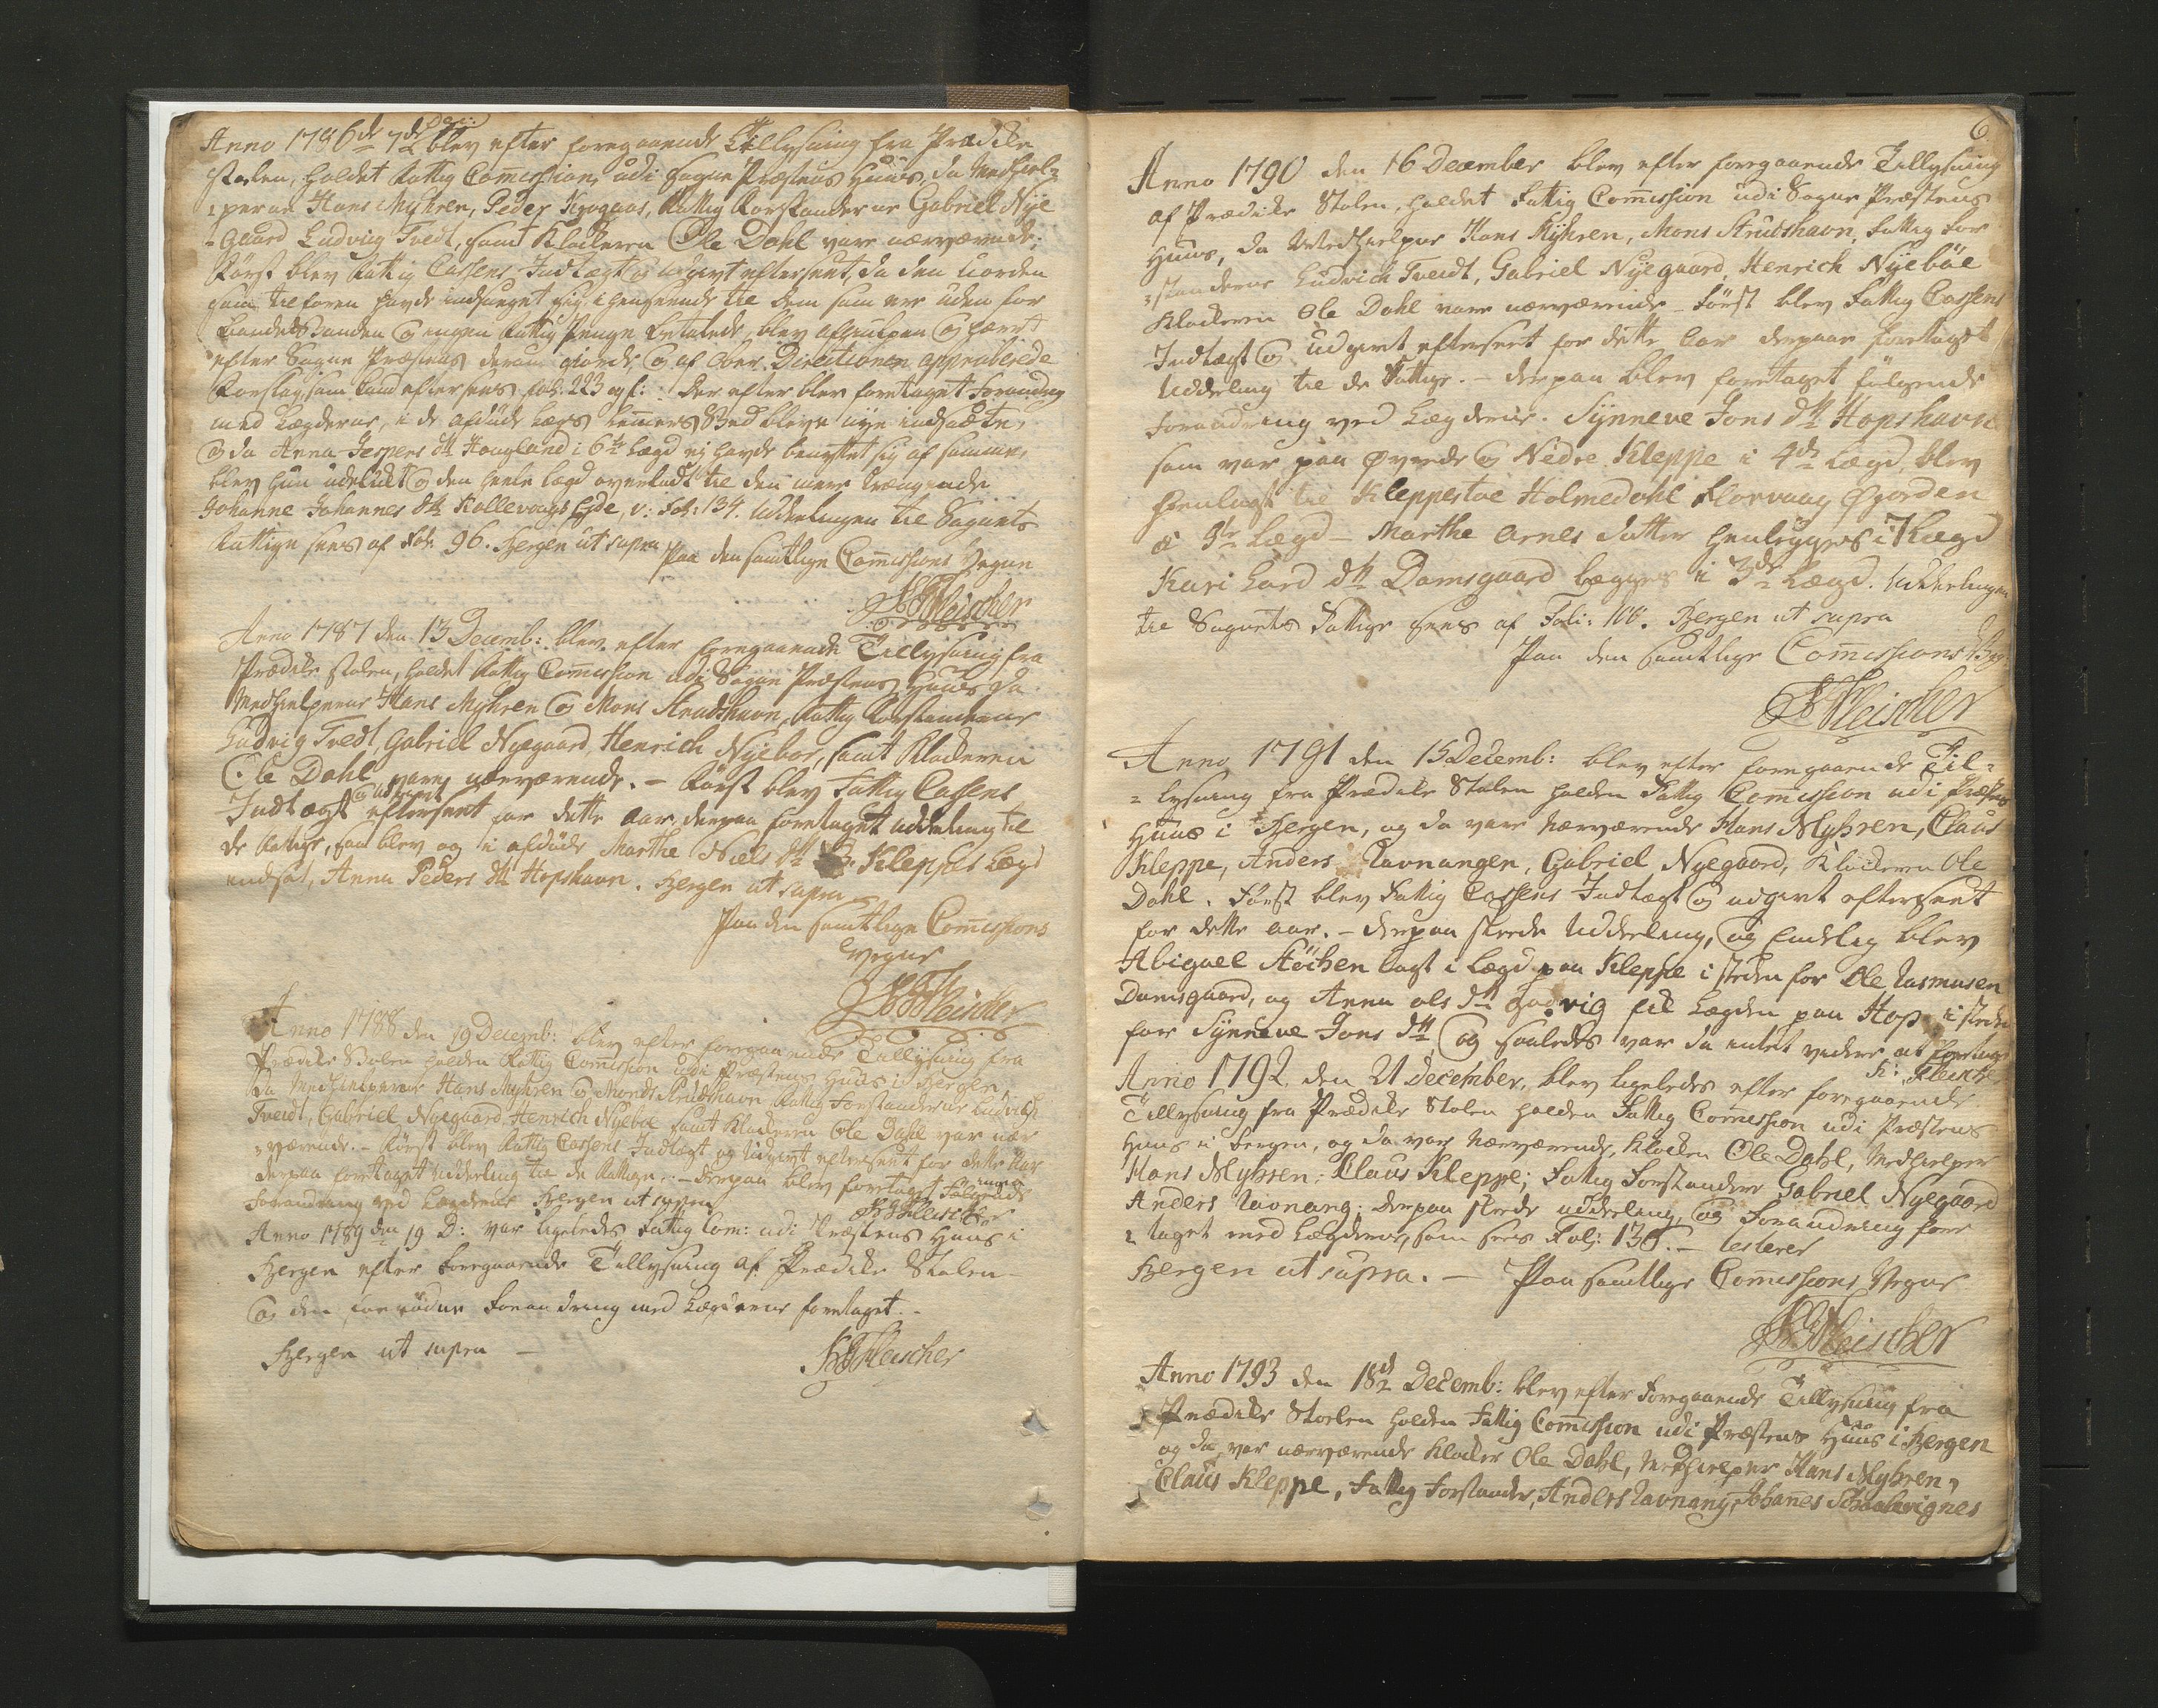 Anno 1786 d 7de Dec: blev efter foregaaende Tillysning fra Prædike
stolen, holdet Fattig Com̄ission, udi Sogne Præstens Huus, da Medhiel=
=perne Hans Myhren, Peder Krogaas, Fattig Forstanderne Gabriel Nye
=gaard Ludvig Tvedt, samt Klokkeren Ole Dahl vare nærværende;
Først blev Fattig Cassens Indtægt og udgivt efterseet, da den uorden
som tilforen havde indsneget sig, i henseende til dem som ere uden for
Bandets Banden og ingen Fattig Penge betalede, blev afhulpen og hævet
efter Sogne Præstens derom giorde, og af Over Directionen approberede
Forslag, som kand eftersees fol: 223 og f: Derefter blev foretaget Forandring
med Lægderne, i de afdøde Lægs Lemmers Sted bleve nye indsadte,
og da Anna Jespers dtr Haugland i 6te Lægd ej havde benyttet sig af samme,
blev hun udelukt og den heele Lægd overladt til den mere trængende
Johanne Johannes dtr Kollevaags Eyde, v: fol: 134. Uddelingen til Sognets
Fattige sees af fol: 96. Bergen ut supra
Paa den samtlige Com̄issions Vegne
HFleischer
Anno 1787 den 13 Decemb: blev efter foregaaende Tillysning fra
Prædike stolen, holdet Fattig Com̄ission udi Sogne Præstens Huus, da
Medhielperne Hans Myhren og Mons Strudshavn, Fattig Forstanderne
Ludvig Tvedt, Gabriel Nyegaard, Henrich Nyebøe, samt Klokkeren
Ole Dahl vare nærværende. - Først blev Fattig Cassens
Indtægt og udgivt efterseet for dette Aar, derpaa foretaget uddeling til
de Fattige, saa blev og i afdøde Marthe Niels dtr Kleppes Lægd
indsat, Anna Peders dtr Hopshavn. Bergen ut supra
Paa den samtlige Com̄issions
Vegne
HFleischer
Anno 1788 den 19 Decemb: blev efter foregaaende Tillysning fra
Prædike Stolen holden Fattig Com̄ission udi Præstens Huus i Bergen
da Medhielperne Hans Myhren og Monds Strudshavn, Fattig Forstanderne Ludvich
Tveidt, Gabriel Nyegaard, Henrich Nyebøe samt Klokkeren Ole Dahl var nær
=værende. - Først blev Fattig Cassens Indtægt og Udgivt efterseet for dette Aar
derpaa foretaget uddeling til de Fattige. - derpaa blev foretaget følgende
Forandring ved Lægderne Bergen ut supra
HFleischer
Anno 1789 den 19 D: var ligeledes Fattig Com: udi Præstens Huus i
Bergen efter foregaaende Tillysning af Prædike Stolen
og den fornødne Forandring med Lægderne foretaget. -
Bergen ut supra -
HFleischer
6
Anno 1790 den 16 December blev efter foregaaende Tillysning
af Prædike Stolen, holdet Fattig Com̄ission udi Sogne Præstens
Huus, da Medhielper Hans Myhren, Mons Strudshavn, Fattig For
=standerne Ludvich Tveidt, Gabriel Nyegaard, Henrich Nyebøe
Klokkeren Ole Dahl vare nærværende - Først blev Fattig Cassens
Indtægt og udgivt efterseet for dette Aar derpaa foretaget
Uddeling til de Fattige. - derpaa blev foretaget følgende
Forandring ved Lægderne. Synneve Jons dtr Hopshavn
som var paa Øvrede og Nedre Kleppe i 4de Lægd, blev
henlagt til Kleppestøe Holmedahl Florvaag Øjorden
Lægd - Marthe Arnes datter henlægges i 7 Lægd
Kari Lard dtr Damsgaard lægges i 3de Lægd. Uddelingen
til Sognets Fattige sees af Foli: 100. Bergen ut supra
Paa den samtlige Com̄issions Veg:
HFleischer
Anno 1791 den 15 Decemb: blev efter foregaaende Til=
=lysning fra Prædike Stolen holden Fattig Com̄ission udi Præstens
Huus i Bergen, og da vare Nærværende Hans Myhren, Claus
Kleppe, Anders Ravnangen, Gabriel Nyegaard, Klokkeren Ole
Dahl. Først blev Fattig Cassens Indtægt og udgivt efterseet
for dette Aar. - derpaa skeede Uddeeling, og endelig blev
Abigael Støchen lagt i Lægd paa Kleppe i steden for Ole Rasmusen
Damsgaard, og Anna ols dtr til Lægden paa Hop i steden
for Synneve Jons dtr og saaledes var da intet videre at foretage
H: Fleischer
Anno 1792 den 21 December, blev ligeledes efter foregaaende
Tillysning fra Prædike Stolen holden Fattig Com̄ission udi Præstens
Huus i Bergen, og da var Nærværende, Klokker Ole Dahl, Medhielper
Hans Myhren: Claus Kleppe; Fattig Forstandere Gabriel Nyegaard
Anders Ravnang: Derpaa skeede uddeling, og Forandring fore
=taget med Lægderne, som sees Fol: 136. - testerer
Bergen ut supra. - Paa samtlige Com̄issions Vegne
HFleischer
Anno 1793 den 18d Decemb: blev efter Foregaaende Tillysning fra
Prædike Stolen holden Fattig Com̄ission udi Præstens Huus i Bergen
og da var nærværende Klokker Ole Dahl, Medhielper Hans Myhren,
Claus Kleppe, Fattig Forstander, Anders Ravnang, Johan̄es